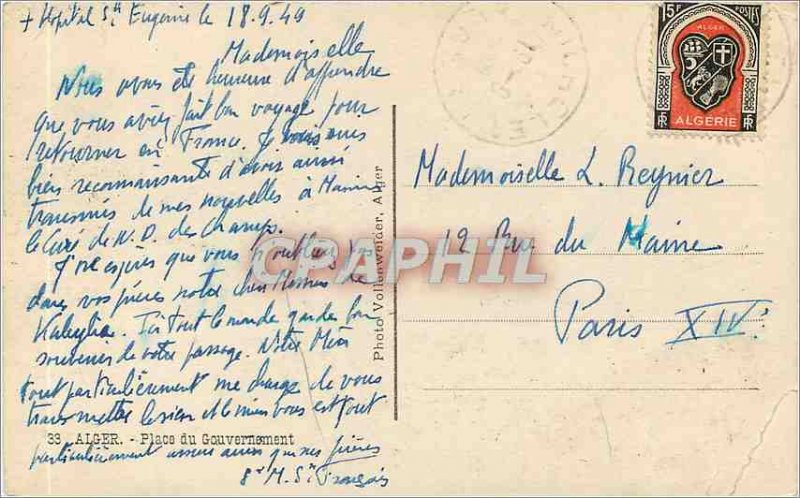 + Hôpital St Eugène le 18.9.49
Mademoiselle
Nous avons été heureuse d'apprendre
que vous aviez fait bon voyage pour
retourner en France. Je vous suis
bien reconnaissante d'avoir aussi
transmis de mes nouvelles à
le Curé de N.D. des Champs.
J'espère que vous n'oubliez pas
dans vos prières notre cher
Kabylie. Ici tout le monde garde bon
souvenir de votre passage. Notre Mère
tout particulièrement me charge de vous
transmettre le sien et le mien vous est tout
33 ALGER. - Place du Gouvernement
particulièrement assuré ainsi que mes prières
Sr M. St François
Photo Vollenweider, Alger
15F POSTES
ALGER
RF RF
ALGÉRIE
Mademoiselle L. Reynier
12 Rue du Maine
Paris XIV
CPAPHIL